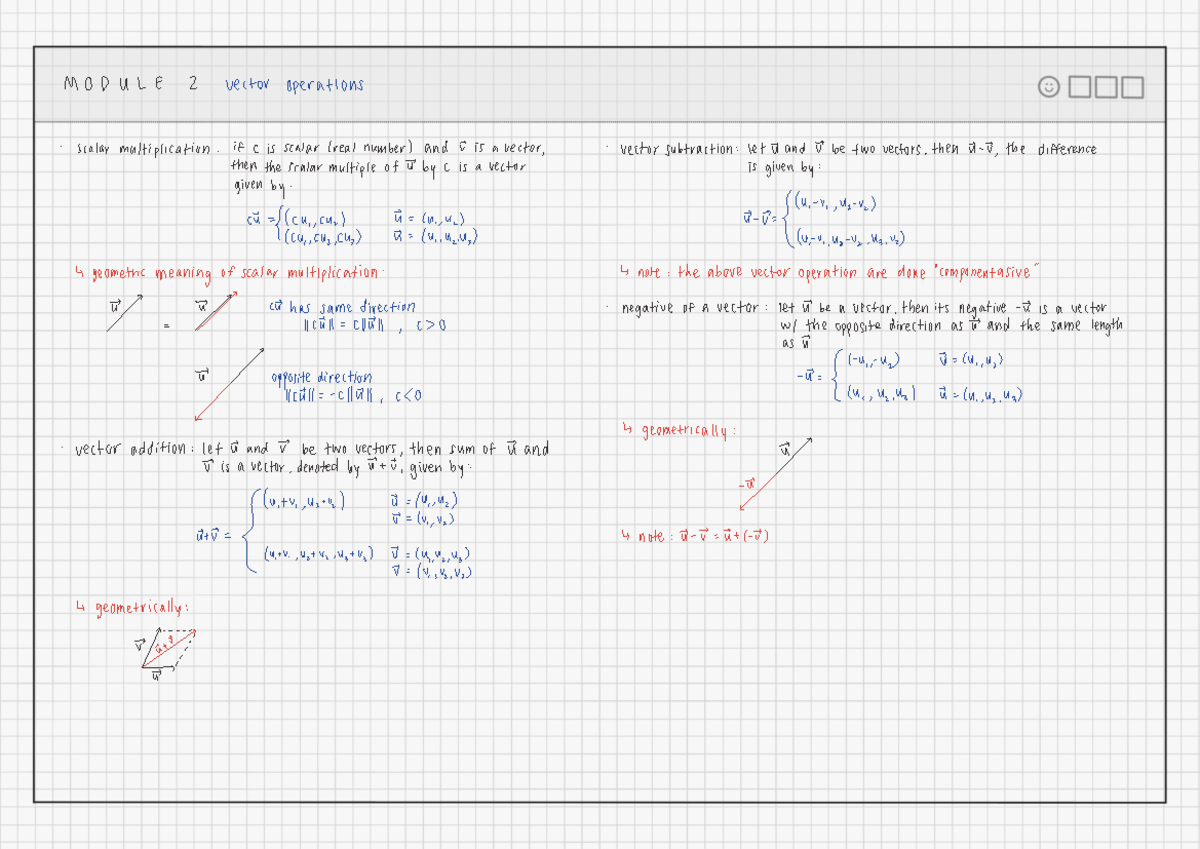 MODULE 2 vector operations
· scalar multiplication. if c is scalar (real number) and v⃗ is a vector,
then the scalar multiple of u⃗ by c is a vector
given by.
cu⃗ = { (cu₁, cu₂) u⃗ = (u₁, u₂)
(cu₁, cu₂, cu₃) u⃗ = (u₁, u₂, u₃)
↳ geometric meaning of scalar multiplication.
u⃗ = u⃗
cu⃗ has same direction
‖cu⃗‖ = c‖u⃗‖ , c>0
u⃗
opposite direction
‖cu⃗‖ = -c‖u⃗‖, c<0
· vector addition: let u⃗ and v⃗ be two vectors, then sum of u⃗ and
v⃗ is a vector, denoted by u⃗+v⃗, given by:
(u₁+v₁, u₂+v₂) u⃗ = (u₁, u₂)
v⃗ = (v₁, v₂)
u⃗+v⃗ = {
(u₁+v₁, u₂+v₂, u₃+v₃) u⃗ = (u₁, u₂, u₃)
v⃗ = (v₁, v₂, v₃)
↳ geometrically:
v⃗ u⃗+v⃗
u⃗
· vector subtraction: let u⃗ and v⃗ be two vectors. then u⃗-v⃗, the difference
is given by:
(u₁-v₁, u₂-v₂)
u⃗-v⃗ = {
(u₁-v₁, u₂-v₂, u₃-v₃)
↳ note: the above vector operation are done "componentasive"
· negative of a vector: let u⃗ be a vector. then its negative -u⃗ is a vector
w/ the opposite direction as u⃗ and the same length
as u⃗
(-u₁, -u₂) u⃗ = (u₁, u₂)
-u⃗ = {
(u₁, u₂, u₃) u⃗ = (u₁, u₂, u₃)
↳ geometrically:
u⃗
-u⃗
↳ note: u⃗-v⃗ = u⃗+(-v⃗)